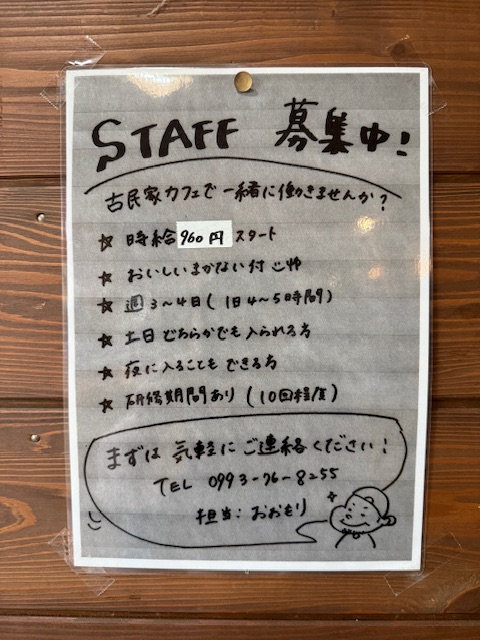 STAFF 募集中!
古民家カフェで一緒に働きませんか?
☆ 時給960円スタート
☆ おいしいまかない付
☆ 週3〜4日(1日4〜5時間)
☆ 土日どちらかでも入られる方
☆ 夜に入ることもできる方
☆ 研修期間あり(10回程度)
まずは気軽にご連絡ください!
TEL 0993-76-8255
担当:おおもり